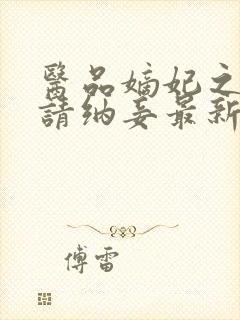 醫品嫡妃之
請納妾最新
傅雷